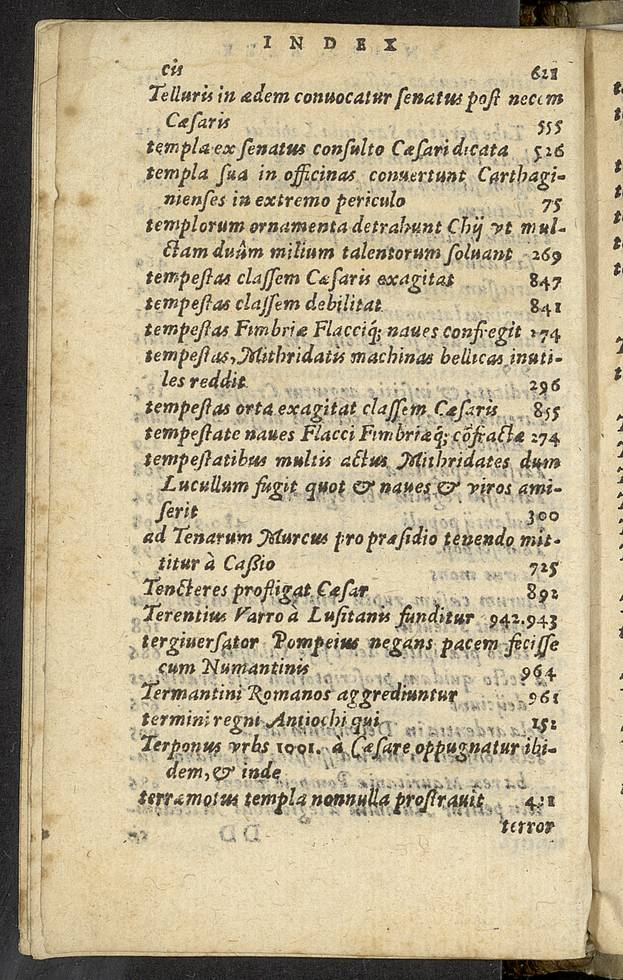 INDEX
cis 621
Telluris in ædem conuocatur senatus post necem
Cæsaris 555
templa ex senatus consulto Cæsari dicata 526
templa sua in officinas conuertunt Carthagi-
nienses in extremo periculo 75
templorum ornamenta detrahunt Chij vt mul-
ctam duûm milium talentorum soluant 269
tempestas classem Cæsaris exagitat 847
tempestas classem debilitat 841
tempestas Fimbriæ Flacciq́; naues confregit 274
tempestas, Mithridatis machinas bellicas inuti-
les reddit 296
tempestas orta exagitat classem Cæsaris 855
tempestate naues Flacci Fimbriæq́; cõfractæ 274
tempestatibus multis actus Mithridates dum
Lucullum fugit quot & naues & viros ami-
serit 300
ad Tenarum Murcus pro præsidio tenendo mit-
titur à Cassio 725
Tencteres profligat Cæsar 892
Terentius Varro à Lusitanis funditur 942.943
tergiuersator Pompeius negans pacem fecisse
cum Numantinis 964
Termantini Romanos aggrediuntur 961
termini regni Antiochi qui 152
Terponus vrbs 1001. à Cæsare oppugnatur ibi-
dem, & inde
terræmotus templa nonnulla prostrauit 421
terror